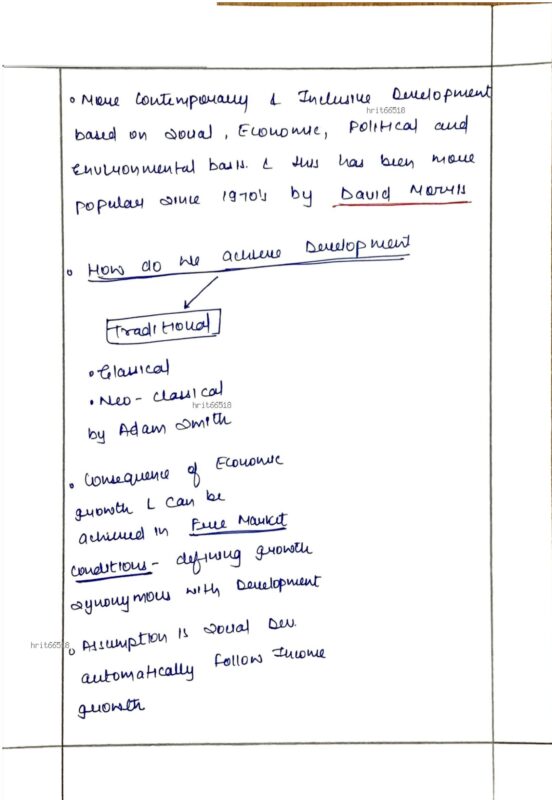 • More Contemporary & Inclusive Development
hrit66518
based on social, Economic, Political and
Environmental basis. & this has been more
popular since 1970's by David Morris
• How do we achieve Development
Traditional
• Classical
• Neo - classical
hrit66518
by Adam Smith
• Consequence of Economic
growth & can be
achieved in Free Market
Conditions - defining growth
synonymous with Development
hrit66518
• Assumption is social Dev.
automatically follow Income
growth